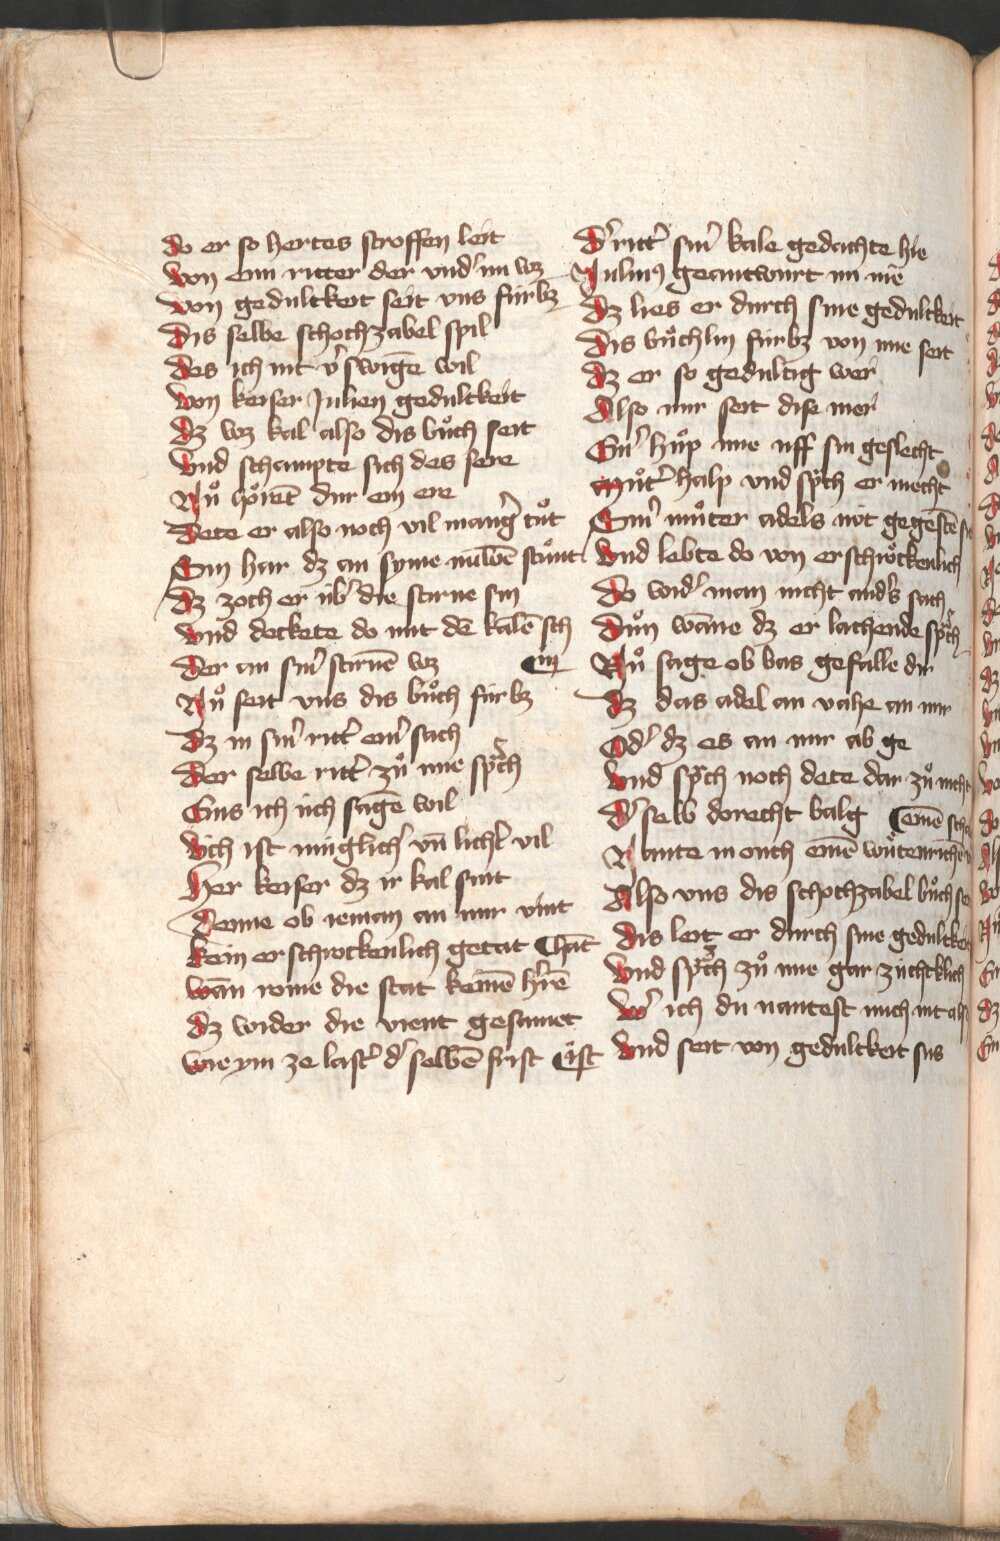 do er so hertes stroffen leit
von eim ritter der vnd' im wz
von gedultkeit seit vns fúrbz
Dis selbe schochzabel spil
des ich nit v'swigē wil
von keiser Julien gedultkeit
dz wz kal also dis bůch seit
vnd schampte sich des sere
Nů hörēt dur ein ere
dete er also noch vil mang' tůt
Ein har dz an syme stůnt
dz zoch er úb' die stirne sin
vnd deckete do mit dē kalē sch
der an sin' stirnē wz ¶in
Nů seit vns dis bůch fúrbz
dz in sin' ritt' ein' sach
der selbe ritt' zů ime sprch
Eins ich úch sagē wil
vch ist múglich' vn̄ licht' vil
Her keiser dz ir kal sint
denne ob ieman an mir vint
kein erschrockenlich getat ¶hāt
wān rome die stat keinē h'rē
dz wider die vient gestritet
wie ym ze last' d' selbē frist ¶ist
D' ritt' sin' kale gedachte hie
Julius geantwurt im nie
dz lies er durch sine gedultkeit
dis bůchlin fúrbz von ime seit
dz er so gedultig wer
Also mir seit dise mer
Ein' hůp ime uff sin geslecht
můt' halp vnd sprch er mecht
Sin' můter adels nit gegeste
vnd lebte do von erschröckenlich
do wid' man nicht and's sach
dun wāne dz er lachende sprch
Nů sage ob bas gefalle dir
dz das adel an vahe an mir
Od' dz es an mir ab ge
vnd sprch noch dete dar zů nicht
d' selb dorecht balg ¶einē
Nante in ouch einē wůtenrichē
Also vns dis schochzabel bůch
dis leit er durch sine gedultkeit
vnd sprch zů ime gar zúchtklich
w' ich du nantest mich nit als
vnd seit von gedultkeit sus